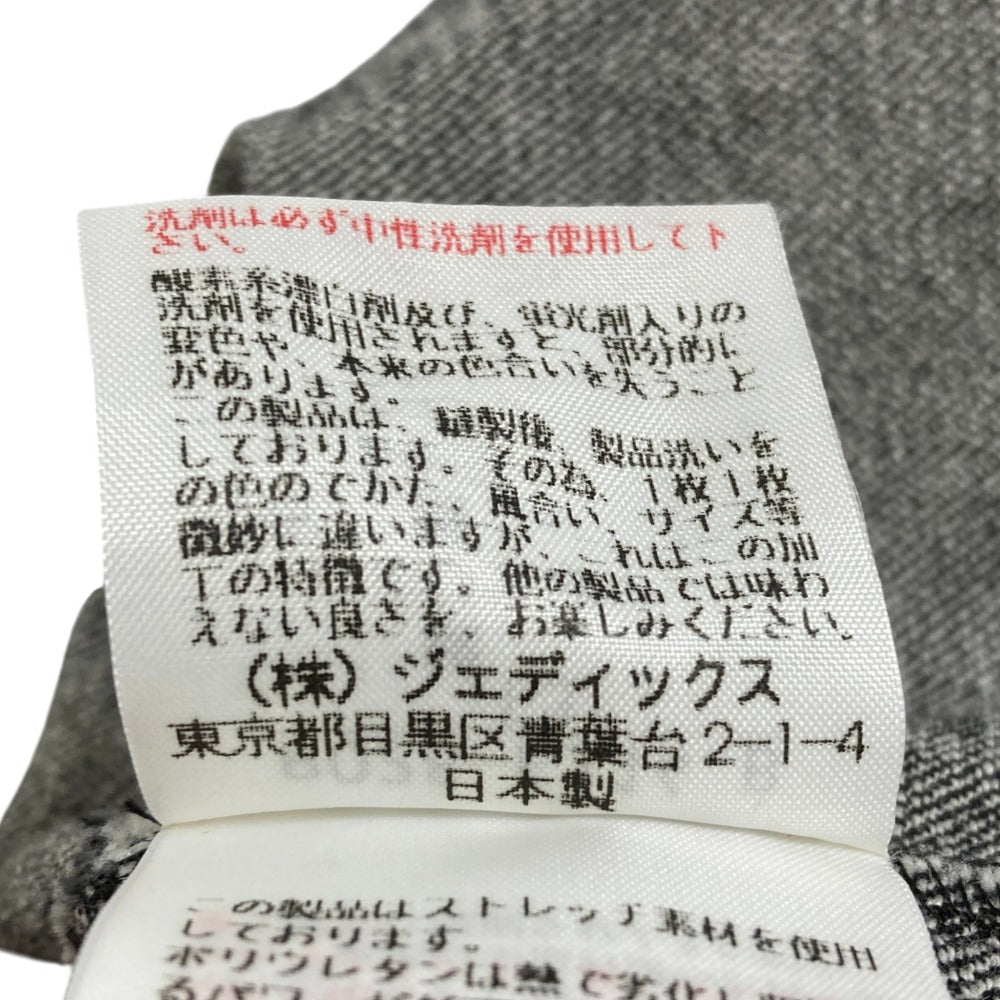 洗剤は必ず中性洗剤を使用して下
さい。
酸素系漂白剤及び、蛍光剤入りの
洗剤を使用されますと、部分的に
変色や、本来の色合いを失うこと
があります。
この製品は、縫製後、製品洗いを
しております。その為、1枚1枚
の色のでかた、風合い、サイズ等
微妙に違いますが、これはこの加
工の特徴です。他の製品では味わ
えない良さを、お楽しみください。
(株)ジェディックス
東京都目黒区青葉台2-1-4
日本製
この製品はストレッチ素材を使用
しております。
ポリウレタンは熱で劣化し
るパワ